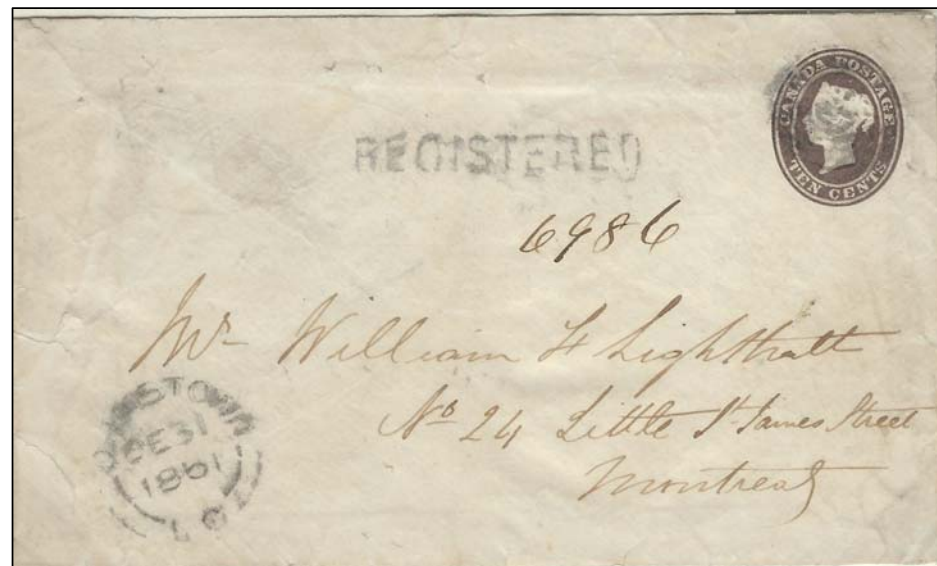 CANADA POSTAGE
TEN CENTS
REGISTERED
6986
Mr William F Lighthall
No 24 Little St James Street
Montreal
ORMSTOWN
DE 31
1861
L.C.